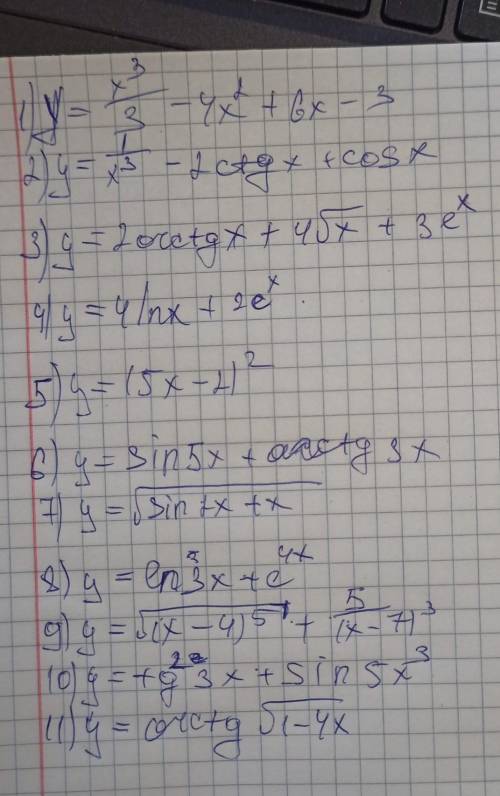 1) y = x³/3 - 4x² + 6x - 3
2) y = 1/x³ - 2ctgx + cosx
3) y = 2arctgx + 4√x + 3eˣ
4) y = 4lnx + 2eˣ
5) y = (5x - 2)²
6) y = sin5x + arctg3x
7) y = √(sin7x + x)
8) y = ln 3x + e⁴ˣ
9) y = √((x - 4)⁵) + 5/(x - 7)³
10) y = tg²3x + sin5x³
11) y = arctg√(1-4x)